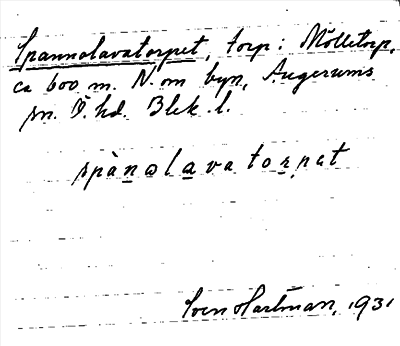 Spannolavatorpet, torp i Mölletorp,
ca 600 m. N. om byn, Augerums
sn. Ö. hd. Blek. l.
spànolavatorpat
Sven Hartman, 1931